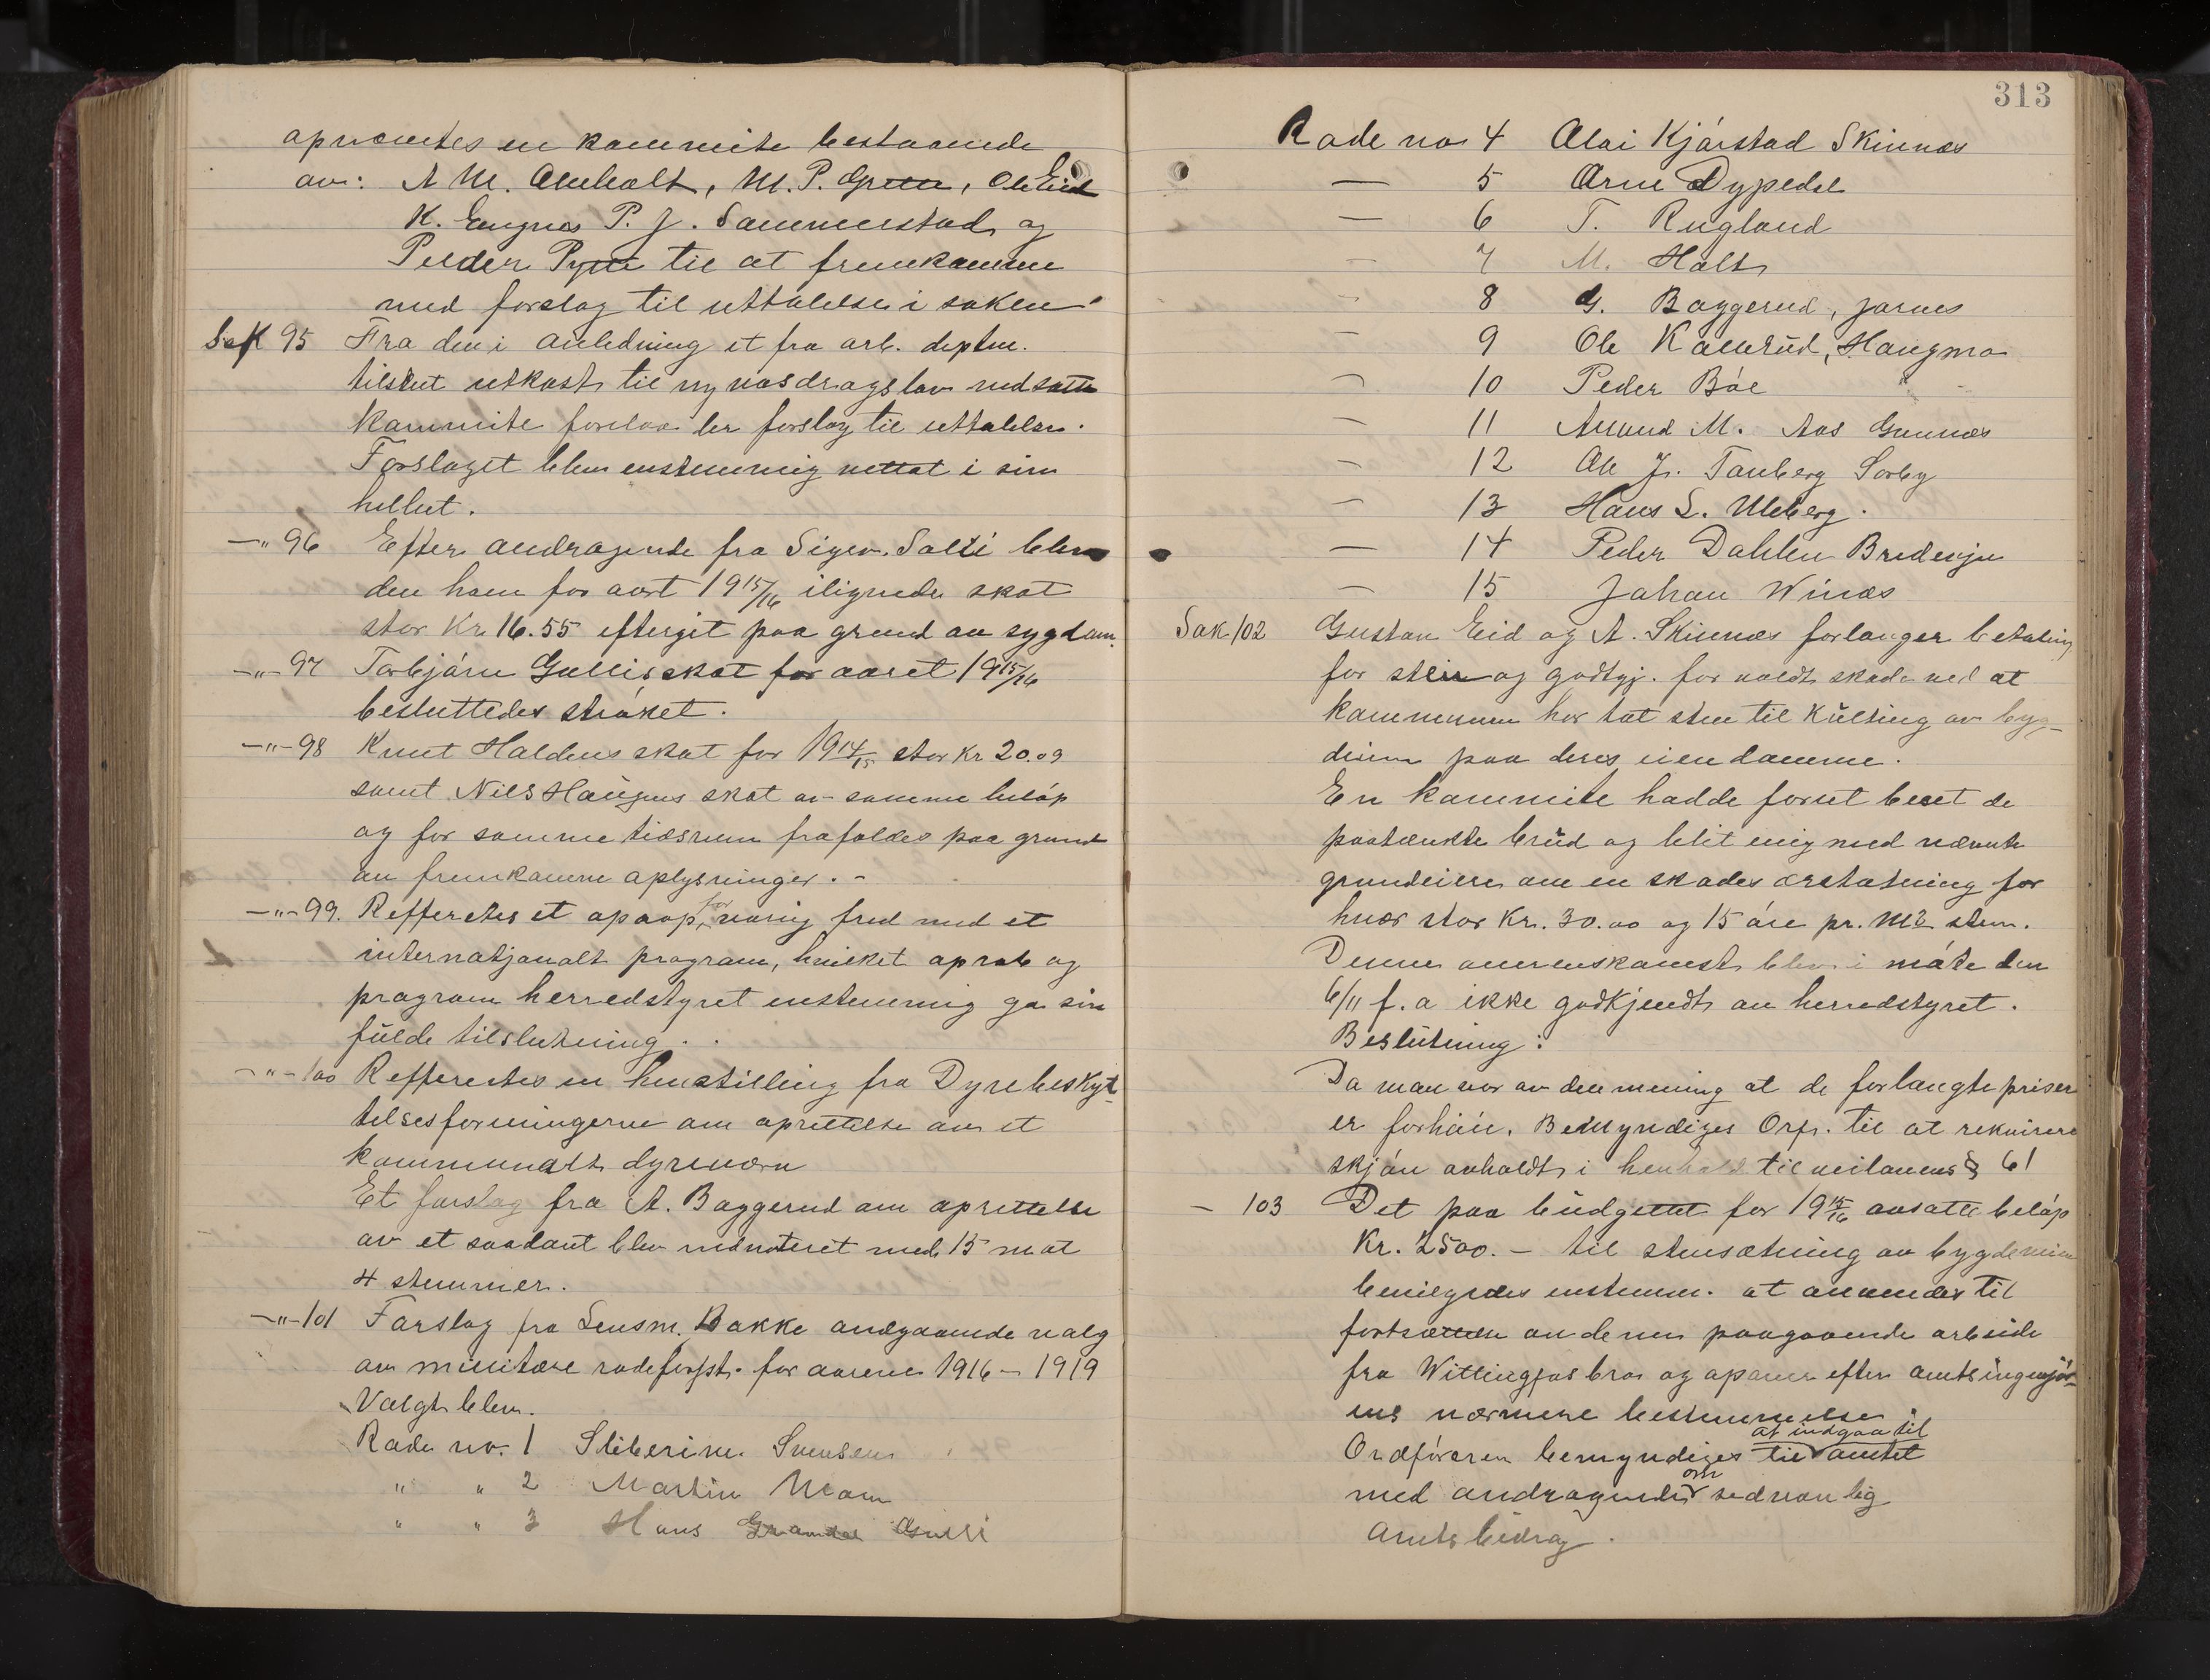 opnævntes en kommite bestaaende
av: A M. Amholt, M. P. Grette, Ole Eid
K. Engnes P. J. Sammerstad og
Peder Pytte til at fremkomme
med forslag til uttalelse i saken
Sak 95 Fra den i anledning et fra arb. deptm.
tilstillet utkast til ny vasdragslov nedsatte
kommite forelaa der forslag til uttalelse.
Forslaget blev enstemmig vettat i sin
helhet.
-"- 96 Efter andragende fra Sigv. Solli blev
den ham for aaret 1915/16 ilignede skat
stor Kr. 16.55 eftergit paa grund av sygdom.
-"- 97 Torbjørn Gullis skat for aaret 1915/16
besluttedes strøket.
-"- 98 Knut Haldens skat for 1914/15 stor Kr 20.09
samt Nils Haugens skat av samme beløp
og for samme tidsrum frafaldes paa grund
av fremkomne oplysninger. -
-"- 99. Refferertes et oprop for varig fred med et
internatjonalt program, hvilket oprob og
program herredstyret enstemmig ga sin
fulde tilslutning.
-"- 100 Refferertes en henstilling fra Dyrebeskyt-
telsesforeningerne om oprettelse av et
kommunalt dyrevern
Et forslag fra A. Baggerud om oprettelse
av et saadant blev nedvoteret med 15 mot
4 stemmer.
-"- 101 Forslag fra Lensm. Bakke angaaende valg
av militære rodeforst. for aarene 1916 - 1919
Valgt blev.
Rode no. 1 Svensen
" " 2 Martin Moen
" " 3 Hans Gulli
313
Rode no 4 Olai Kjørstad Skinnes
— 5 Arne Dypedal
— 6 T. Rugland
— 7 M. Holt
— 8 G. Baggerud, Jarnes
— 9 Ole Kallerud, Haugmo
— 10 Peder Bøe
— 11 Amund M. Aas Gunnes
— 12 Ole Js. Tanberg Sørby
— 13 Hans L. Uleberg.
— 14 Peder Dahlen Bredevju
— 15 Johan Winæs
Sak 102 Gustav Eid og A. Skinnes forlanger betaling
for stein og godtgj. for voldt skade ved at
kommunen har tat sten til Kulting av byg-
deveien paa deres eiendomme.
En kommite hadde forut beset de
paatænkte brud og blit enig med nævnte
grundeiere om en skades erstatning for
hver stor Kr. 30.00 og 15 øre pr. M3 sten.
Denne overenskomst blev i møte den
6/11 f. a ikke godkjendt av herredstyret.
Beslutning:
Da man var av den mening at de forlangte priser
er forhøie. Bemyndiges Orf. til at rekvirere
skjøn avholdt i henhold til veilovens § 61
- 103 Det paa budgettet for 1915/16 avsatte beløp
Kr. 2500. - til stensætning av bygdeveien
bevilgedes enstemm. at anvendes til
fortsættelse av denne paagaaende arbeide
fra Wittingfos bro og opover efter amtsingenjør-
ens nærmere bestemmelse
Ordføreren bemyndiges til at indgaa til amtet
med andragende om sedvanlig
Amtsbidrag.